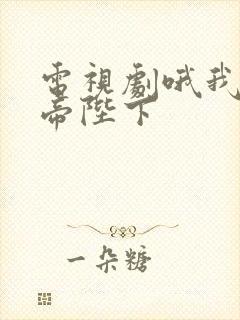 電視劇哦我
帝陛下
一朵糖